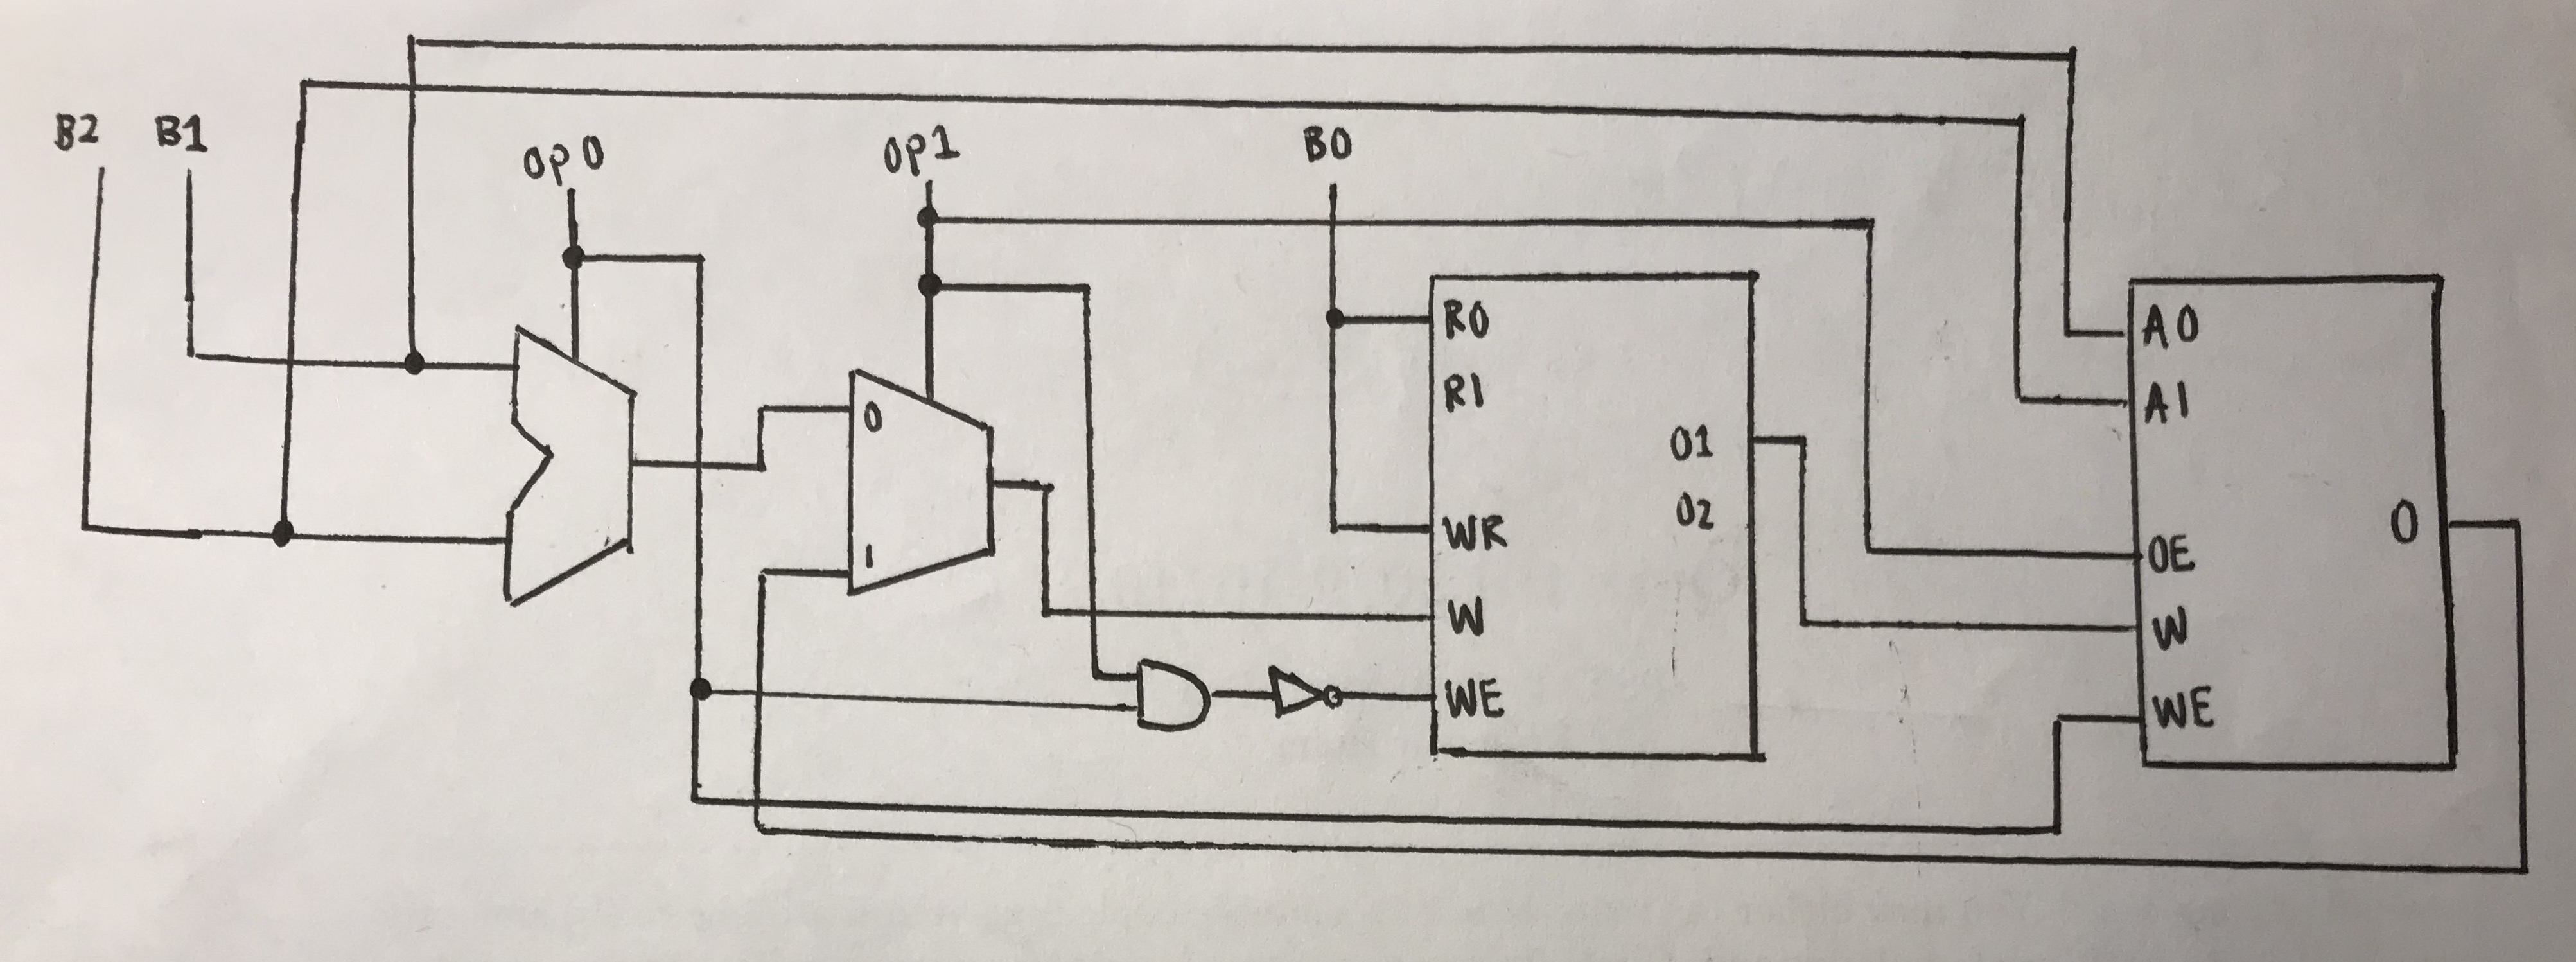 B2
B1
OP0
OP1
B0
0
1
R0
R1
WR
W
WE
O1
O2
A0
A1
OE
W
WE
O